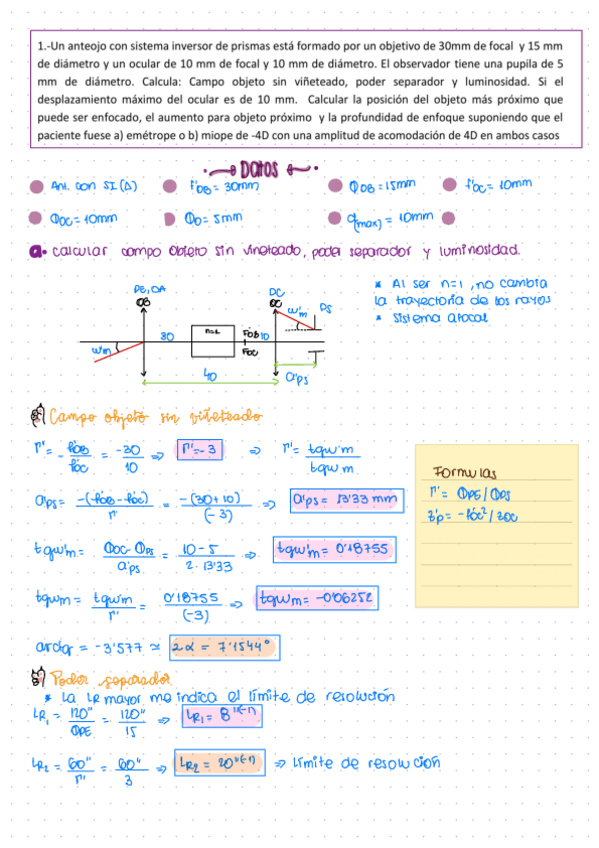 1.-Un anteojo con sistema inversor de prismas está formado por un objetivo de 30mm de focal y 15 mm
de diámetro y un ocular de 10 mm de focal y 10 mm de diámetro. El observador tiene una pupila de 5
mm de diámetro. Calcula: Campo objeto sin viñeteado, poder separador y luminosidad. Si el
desplazamiento máximo del ocular es de 10 mm. Calcular la posición del objeto más próximo que
puede ser enfocado, el aumento para objeto próximo y la profundidad de enfoque suponiendo que el
paciente fuese a) emétrope o b) miope de -4D con una amplitud de acomodación de 4D en ambos casos
Datos
Ant. con SI(Δ)
f'OB = 30mm
ØOB = 15mm
f'OC = 10mm
ØOC = 10mm
ØO = 5mm
d(max) = 10mm
a. calcular campo objeto sin vineteado, poder separador y luminosidad.
PE, DA
OB
DC
OC
w'm
PS
* Al ser n=1, no cambia
la trayectoria de los rayos
* sistema afocal
wm
30
n=1
F'OB
10
FOC
40
a'ps
Campo objeto sin viñeteado
Γ' = - f'OB / f'OC = -30 / 10 => Γ' = -3 => Γ' = tgw'm / tgwm
a'ps = -(-f'OB - f'OC) / Γ' = -(30+10) / (-3) => a'ps = 13'33 mm
tgw'm = ØOC - ØPS / a'ps = 10-5 / 2·13'33 => tgw'm = 0'18755
tgwm = tgw'm / Γ' = 0'18755 / (-3) => tgwm = -0'06252
arctg = -3'577 ≃ 2α = 7'1544°
Formulas
Γ' = ØPE/ØPS
z'p = -f'oc²/zoc
Poder separador
* La LR mayor me indica el límite de resolución
LR1 = 120" / ØPE = 120" / 15 => LR1 = 8"(-1)
LR2 = 60" / Γ' = 60" / 3 => LR2 = 20"(-1) => límite de resolución